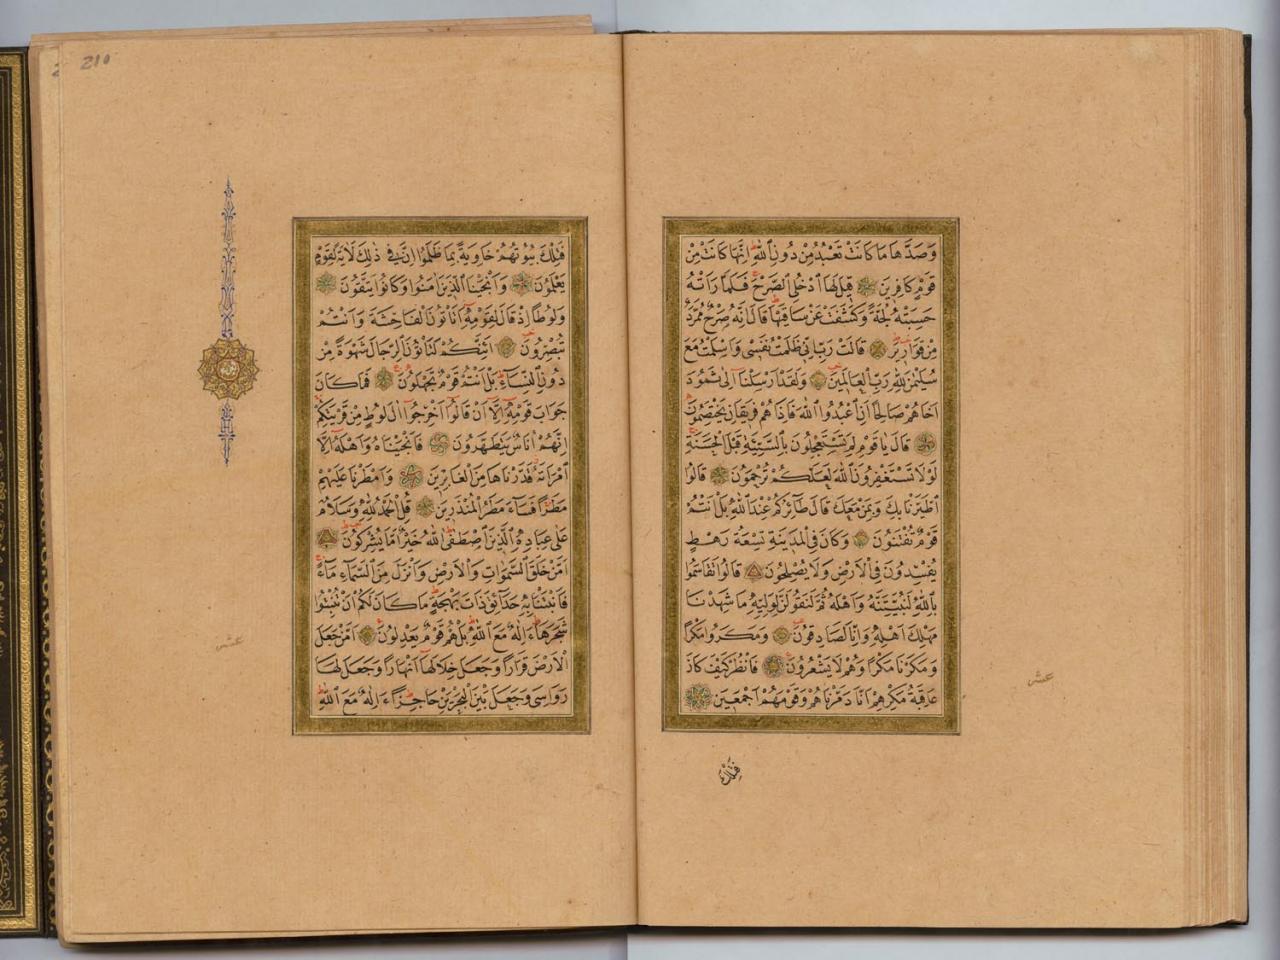 وَصَدَّهَا مَا كَانَتْ تَعْبُدُ مِنْ دُونِ اللّٰهِ اِنَّهَا كَانَتْ مِنْ
قَوْمٍ كَافِرِينَ قِيلَ لَهَا ادْخُلِي الصَّرْحَ فَلَمَّا رَاَتْهُ
حَسِبَتْهُ لُجَّةً وَكَشَفَتْ عَنْ سَاقَيْهَا قَالَ اِنَّهُ صَرْحٌ مُمَرَّدٌ
مِنْ قَوَارِيرَ قَالَتْ رَبِّ اِنِّي ظَلَمْتُ نَفْسِي وَاَسْلَمْتُ مَعَ
سُلَيْمٰنَ لِلّٰهِ رَبِّ الْعَالَمِينَ وَلَقَدْ اَرْسَلْنَا اِلٰى ثَمُودَ
اَخَاهُمْ صَالِحًا اَنِ اعْبُدُوا اللّٰهَ فَاِذَا هُمْ فَرِيقَانِ يَخْتَصِمُونَ
قَالَ يَا قَوْمِ لِمَ تَسْتَعْجِلُونَ بِالسَّيِّئَةِ قَبْلَ الْحَسَنَةِ
لَوْلَا تَسْتَغْفِرُونَ اللّٰهَ لَعَلَّكُمْ تُرْحَمُونَ قَالُوا
اطَّيَّرْنَا بِكَ وَبِمَنْ مَعَكَ قَالَ طَائِرُكُمْ عِنْدَ اللّٰهِ بَلْ اَنْتُمْ
قَوْمٌ تُفْتَنُونَ وَكَانَ فِي الْمَدِينَةِ تِسْعَةُ رَهْطٍ
يُفْسِدُونَ فِي الْاَرْضِ وَلَا يُصْلِحُونَ قَالُوا تَقَاسَمُوا
بِاللّٰهِ لَنُبَيِّتَنَّهُ وَاَهْلَهُ ثُمَّ لَنَقُولَنَّ لِوَلِيِّهِ مَا شَهِدْنَا
مَهْلِكَ اَهْلِهِ وَاِنَّا لَصَادِقُونَ وَمَكَرُوا مَكْرًا
وَمَكَرْنَا مَكْرًا وَهُمْ لَا يَشْعُرُونَ فَانْظُرْ كَيْفَ كَانَ
عَاقِبَةُ مَكْرِهِمْ اَنَّا دَمَّرْنَاهُمْ وَقَوْمَهُمْ اَجْمَعِينَ
فَتِلْكَ
عشر
210
فَتِلْكَ بُيُوتُهُمْ خَاوِيَةً بِمَا ظَلَمُوا اِنَّ فِي ذٰلِكَ لَاٰيَةً لِقَوْمٍ
يَعْلَمُونَ وَاَنْجَيْنَا الَّذِينَ اٰمَنُوا وَكَانُوا يَتَّقُونَ
وَلُوطًا اِذْ قَالَ لِقَوْمِهِ اَتَأْتُونَ الْفَاحِشَةَ وَاَنْتُمْ
تُبْصِرُونَ اَئِنَّكُمْ لَتَأْتُونَ الرِّجَالَ شَهْوَةً مِنْ
دُونِ النِّسَاءِ بَلْ اَنْتُمْ قَوْمٌ تَجْهَلُونَ فَمَا كَانَ
جَوَابَ قَوْمِهِ اِلَّا اَنْ قَالُوا اَخْرِجُوا اٰلَ لُوطٍ مِنْ قَرْيَتِكُمْ
اِنَّهُمْ اُنَاسٌ يَتَطَهَّرُونَ فَاَنْجَيْنَاهُ وَاَهْلَهُ اِلَّا
امْرَاَتَهُ قَدَّرْنَاهَا مِنَ الْغَابِرِينَ وَاَمْطَرْنَا عَلَيْهِمْ
مَطَرًا فَسَاءَ مَطَرُ الْمُنْذَرِينَ قُلِ الْحَمْدُ لِلّٰهِ وَسَلَامٌ
عَلٰى عِبَادِهِ الَّذِينَ اصْطَفٰى اٰللّٰهُ خَيْرٌ اَمَّا يُشْرِكُونَ
اَمَّنْ خَلَقَ السَّمٰوَاتِ وَالْاَرْضَ وَاَنْزَلَ مِنَ السَّمَاءِ مَاءً
فَاَنْبَتْنَا بِهِ حَدَائِقَ ذَاتَ بَهْجَةٍ مَا كَانَ لَكُمْ اَنْ تُنْبِتُوا
شَجَرَهَا ءَاِلٰهٌ مَعَ اللّٰهِ بَلْ هُمْ قَوْمٌ يَعْدِلُونَ اَمَّنْ جَعَلَ
الْاَرْضَ قَرَارًا وَجَعَلَ خِلَالَهَا اَنْهَارًا وَجَعَلَ لَهَا
رَوَاسِيَ وَجَعَلَ بَيْنَ الْبَحْرَيْنِ حَاجِزًا ءَاِلٰهٌ مَعَ اللّٰهِ
عشر